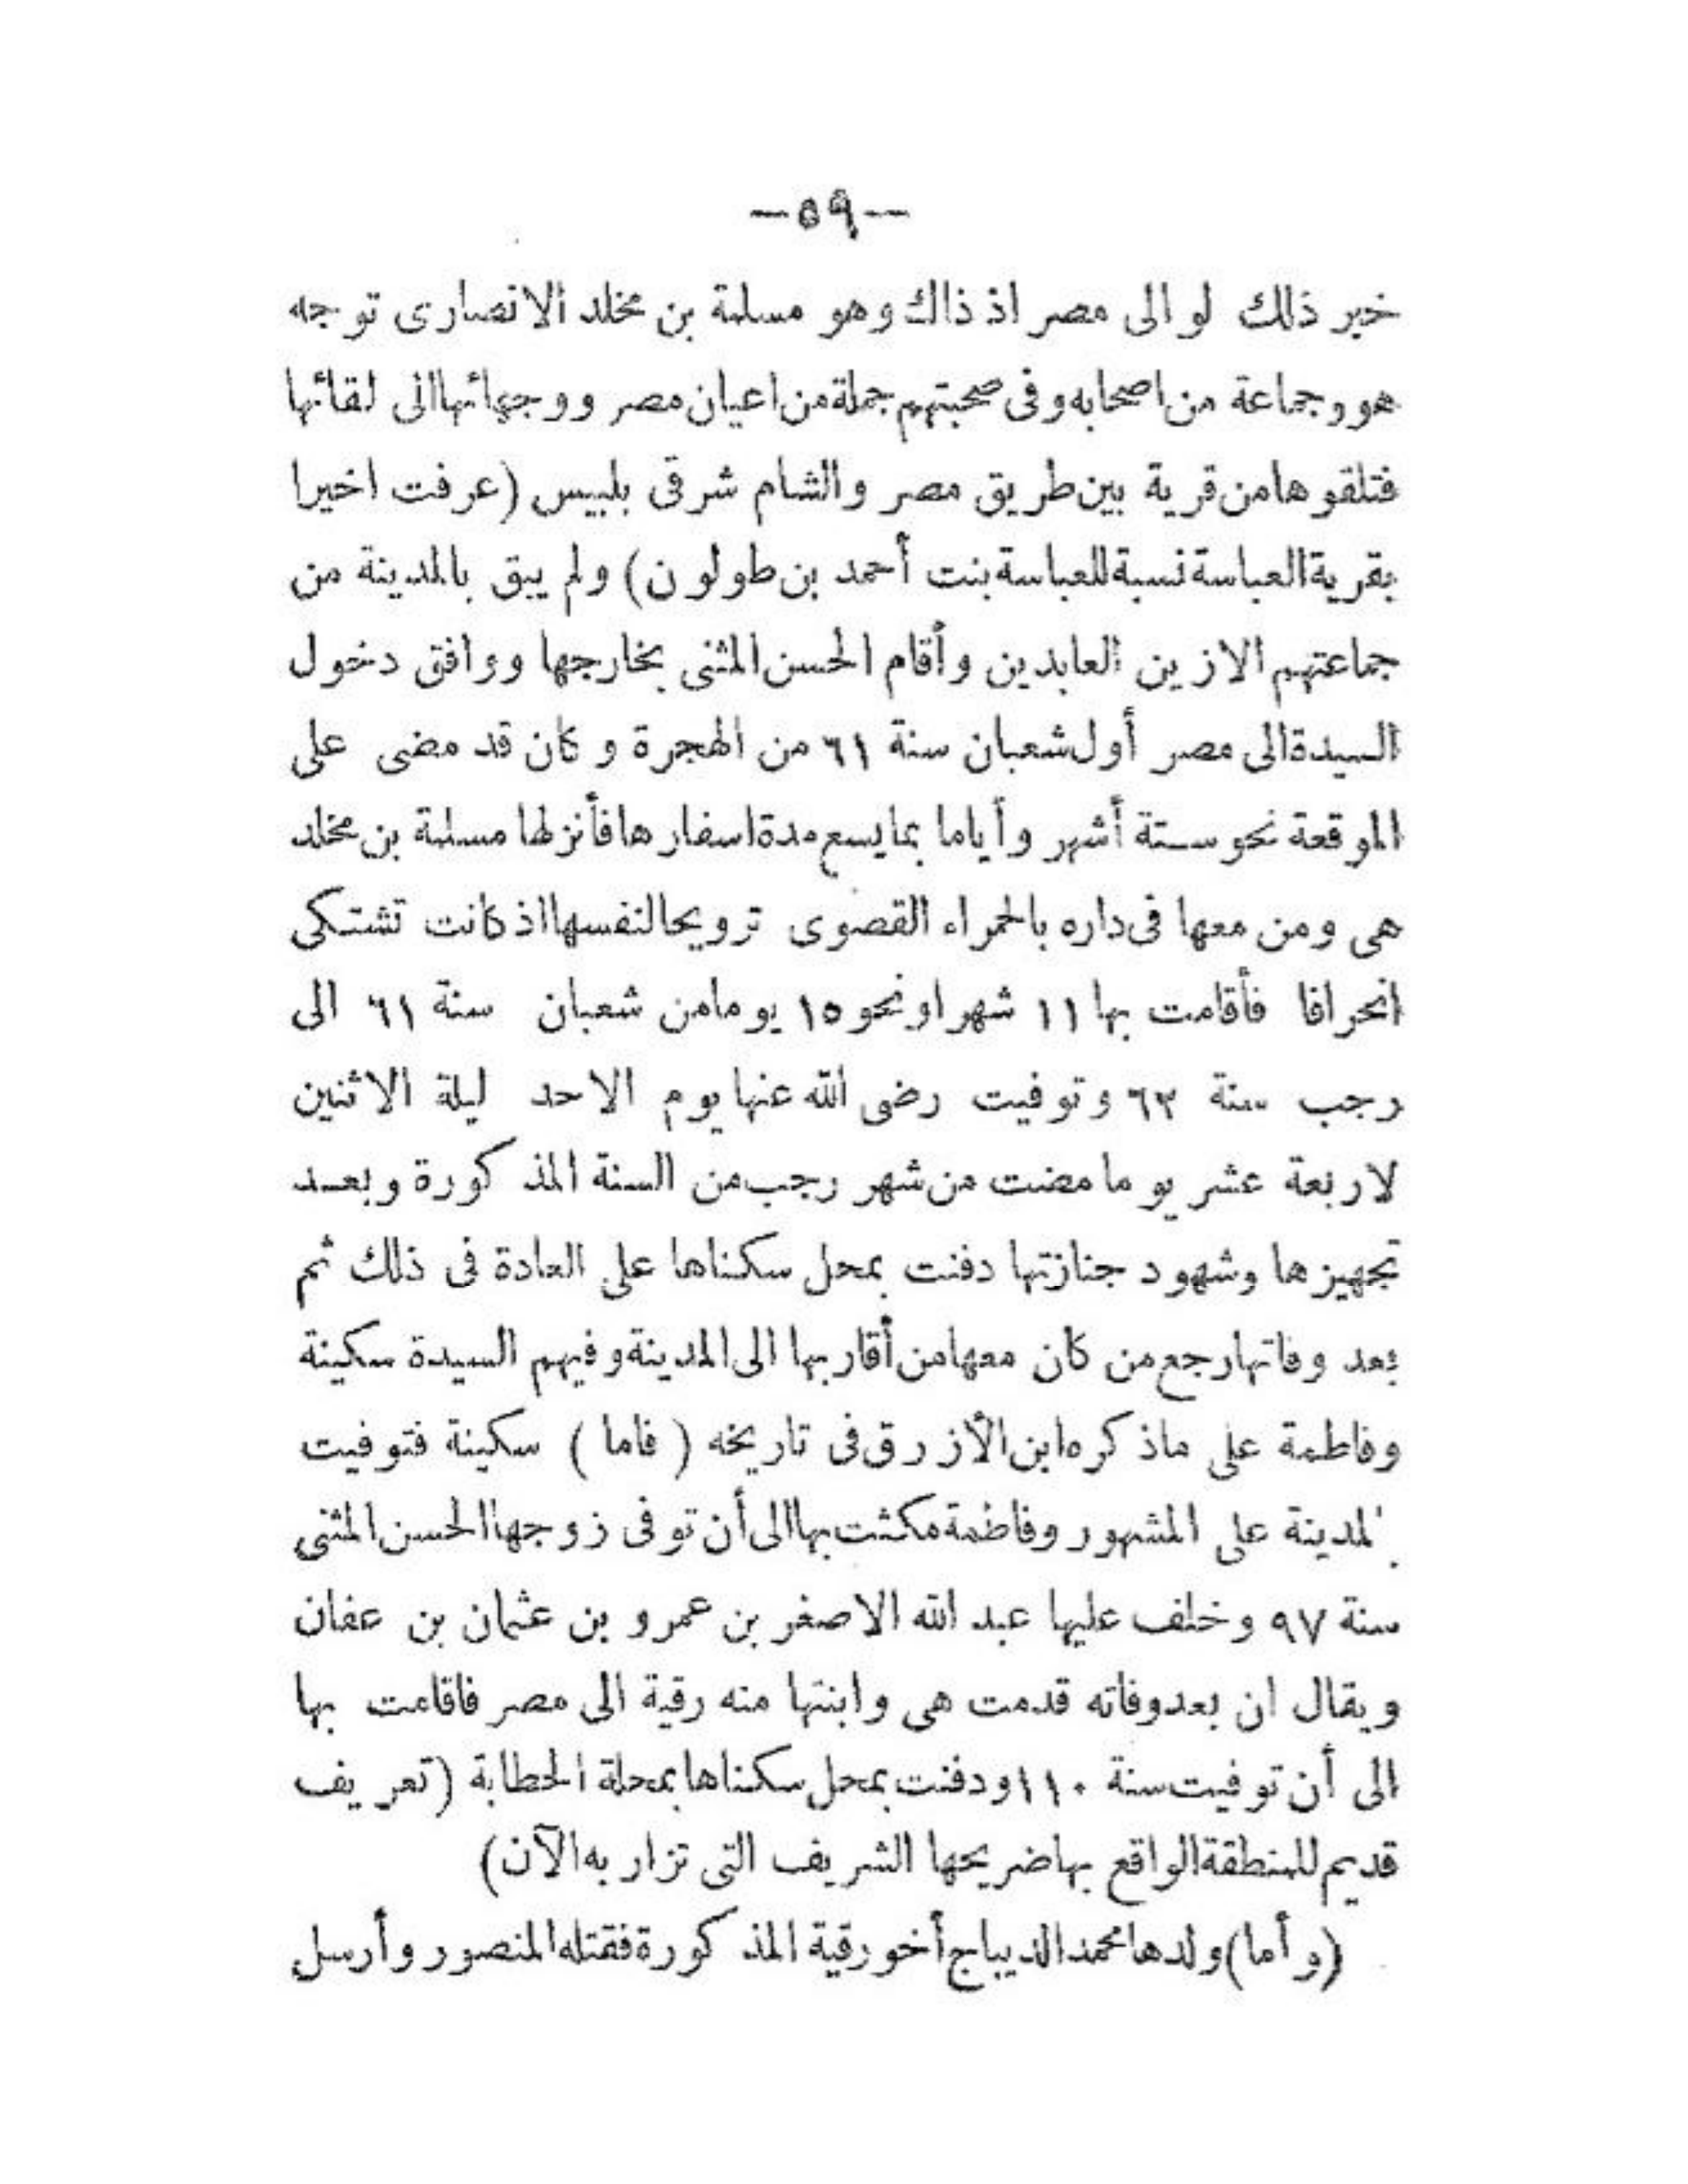 —٥٩—
خبر ذلك لوالى مصر اذ ذاك وهو مسلمة بن مخلد الانصارى توجه
هو وجماعة من اصحابه وفى صحبتهم جملة من اعيان مصر ووجهائها الى لقائها
فتلقوها من قرية بين طريق مصر والشام شرقى بلبيس (عرفت اخيرا
بقرية العباسة نسبة للعباسة بنت أحمد بن طولون) ولم يبق بالمدينة من
جماعتهم الا زين العابدين وأقام الحسن المثنى بخارجها ووافق دخول
السيدة الى مصر أول شعبان سنة ٦١ من الهجرة وكان قد مضى على
الموقعة نحو ستة أشهر وأياما بما يسع مدة اسفارها فأنزلها مسلمة بن مخلد
هى ومن معها فى داره بالحمراء القصوى ترويحا لنفسها اذ كانت تشتكى
انحرافا فأقامت بها ١١ شهرا ونحو ١٥ يوما من شعبان سنة ٦١ الى
رجب سنة ٦٢ وتوفيت رضى الله عنها يوم الاحد ليلة الاثنين
لاربعة عشر يوما مضت من شهر رجب من السنة المذكورة وبعد
تجهيزها وشهود جنازتها دفنت بمحل سكناها على العادة فى ذلك ثم
بعد وفاتها رجع من كان معها من أقاربها الى المدينة وفيهم السيدة سكينة
وفاطمة على ماذكره ابن الأزرق فى تاريخه (فاما) سكينة فتوفيت
بالمدينة على المشهور وفاطمة مكثت بها الى أن توفى زوجها الحسن المثنى
سنة ٩٧ وخلف عليها عبد الله الاصغر بن عمرو بن عثمان بن عفان
ويقال ان بعد وفاته قدمت هى وابنتها منه رقية الى مصر فاقامت بها
الى أن توفيت سنة ١١٠ ودفنت بمحل سكناها بمحلة الحطابة (تعريف
قديم للمنطقة الواقع بها ضريحها الشريف التى تزار به الآن)
(وأما) ولدها محمد الديباج أخو رقية المذكورة فقتله المنصور وأرسل